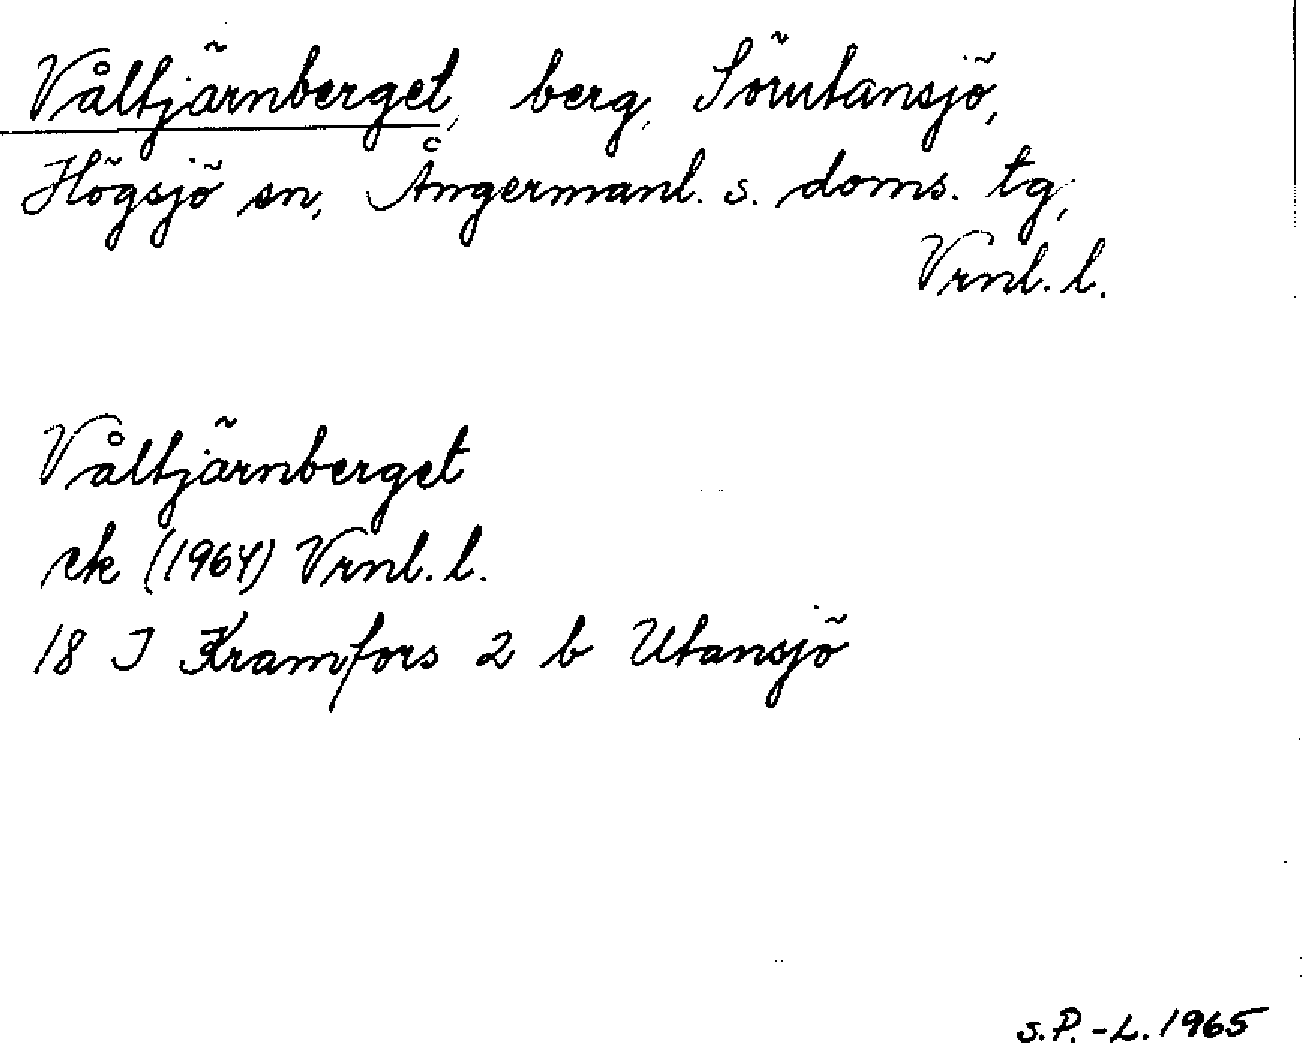 Våltjärnberget, berg, Sörutansjö,
Högsjö sn, Ångermanl. s. doms. tg,
Vrnl. l.
Våltjärnberget
ek (1964) Vrnl. l.
18 J Kramfors 2 b Utansjö
S.P.-L. 1965